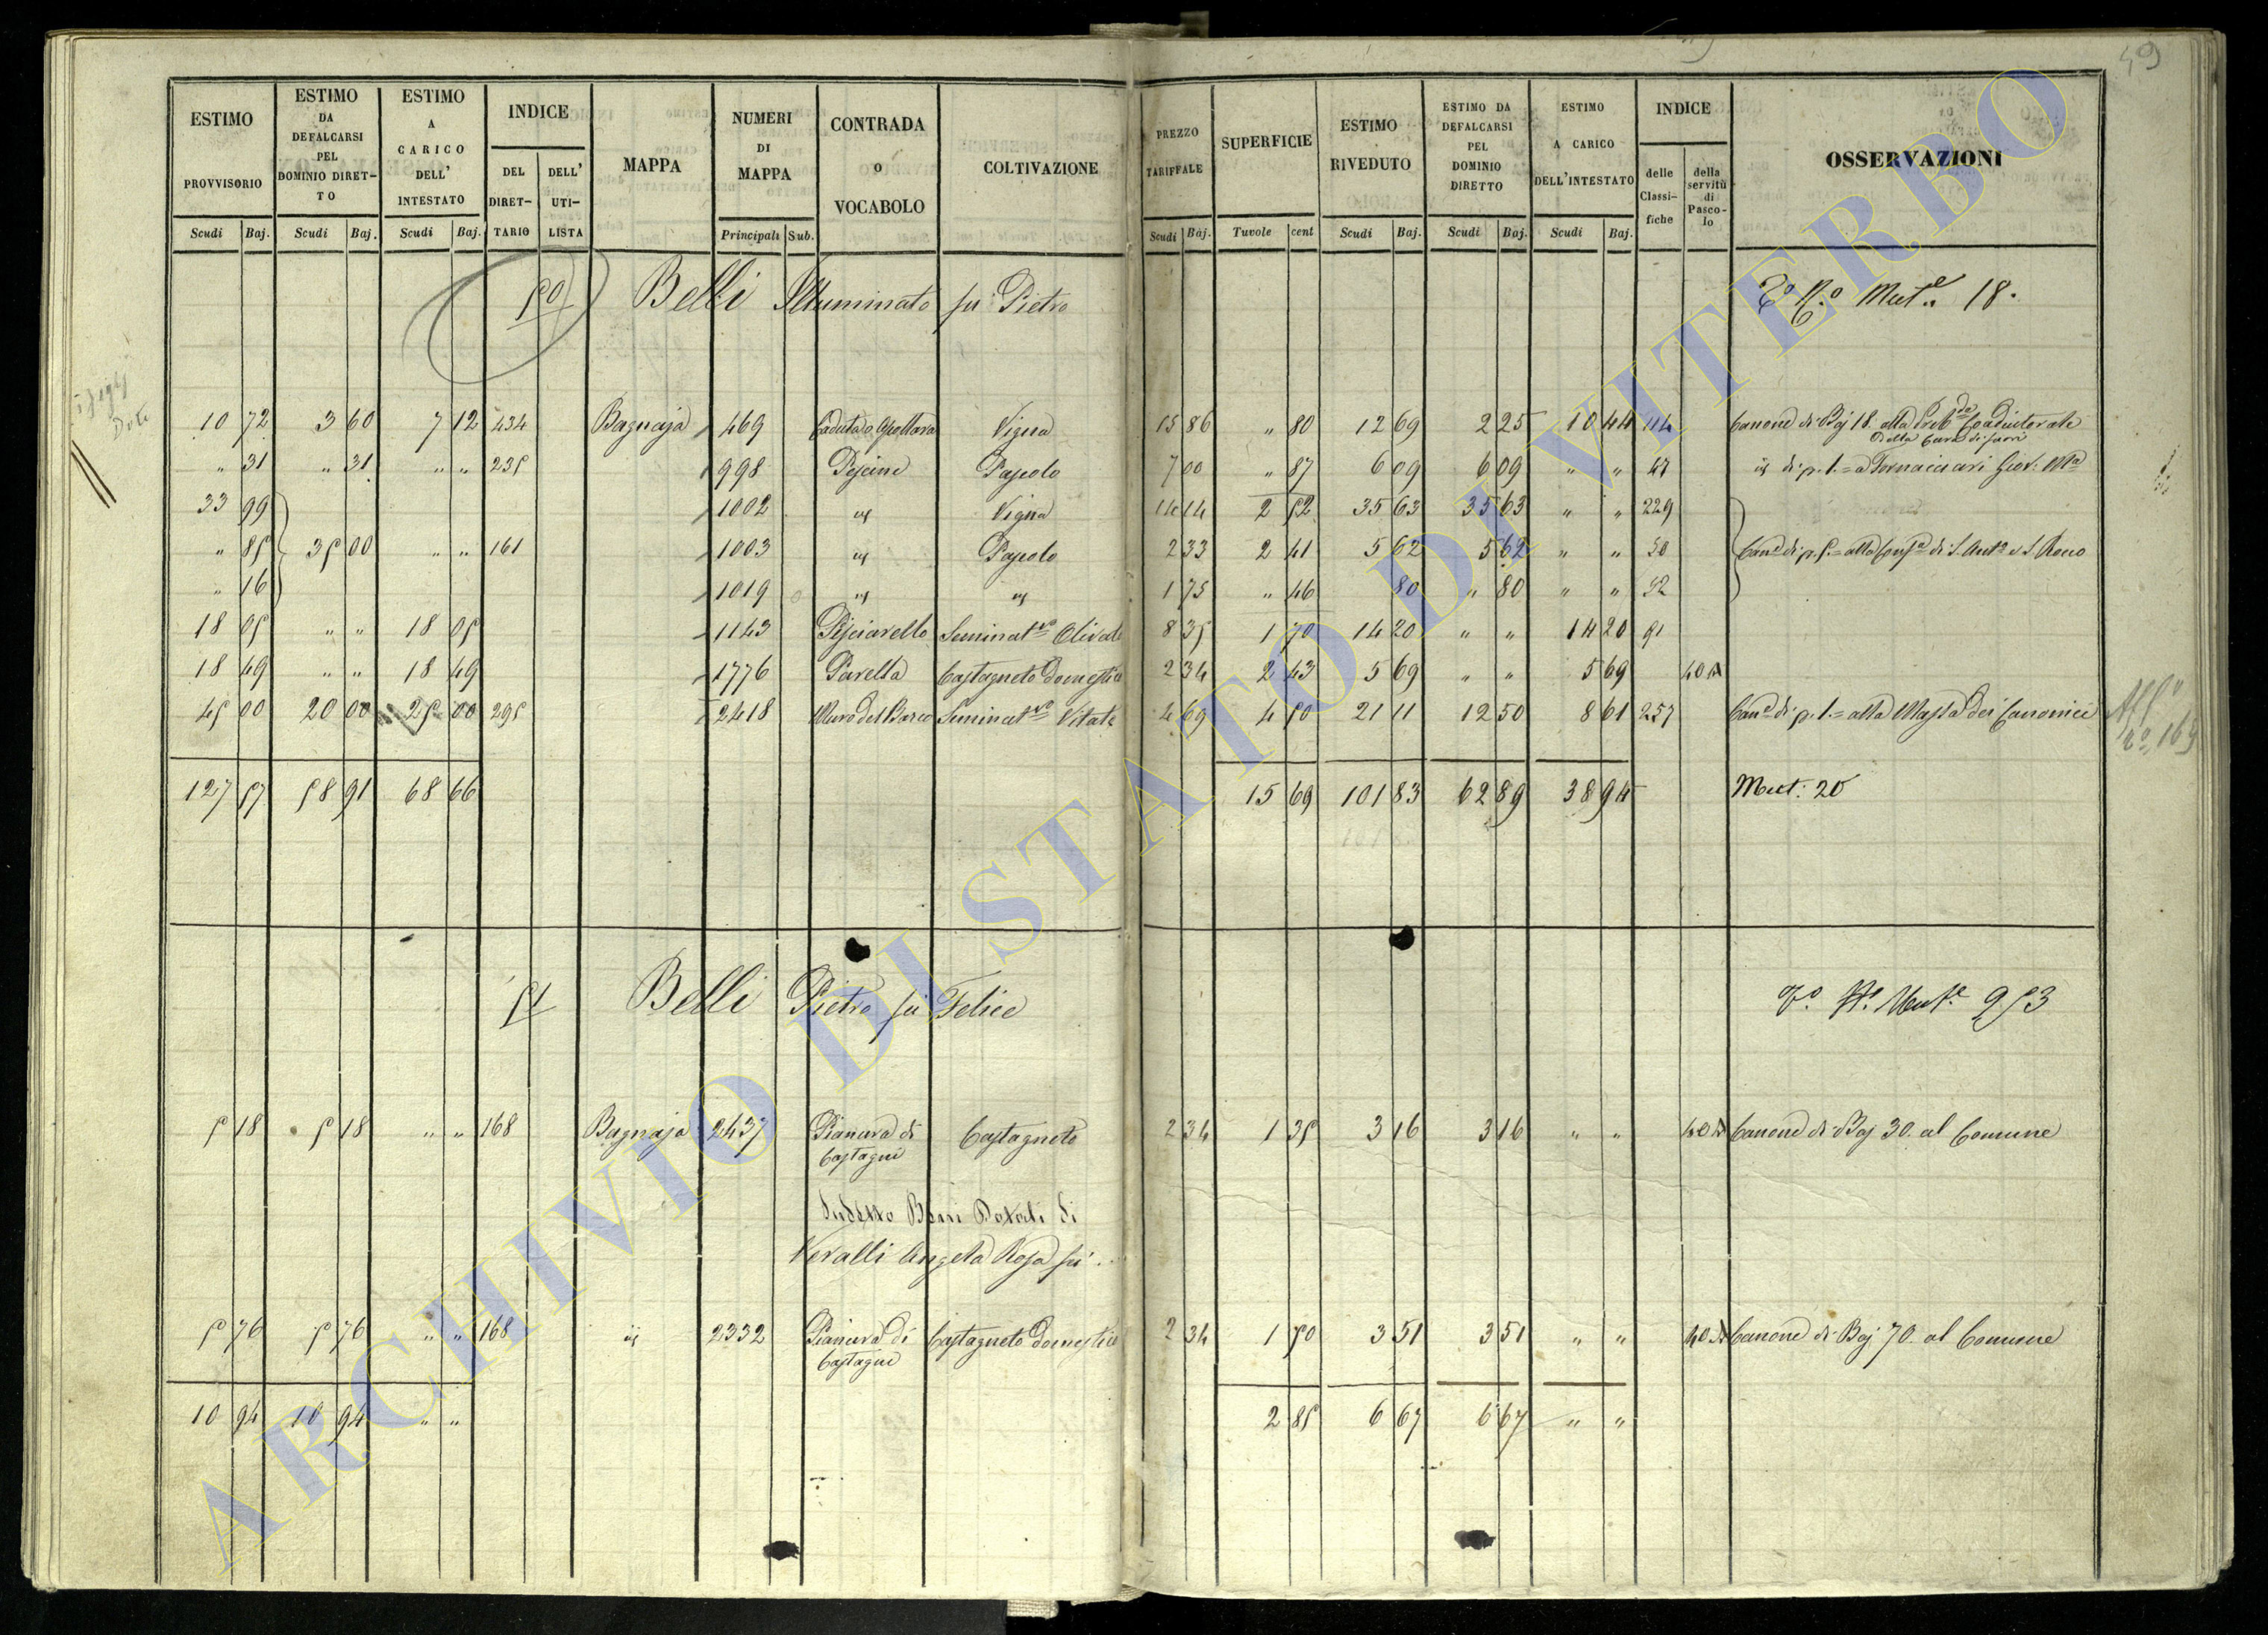 49
ESTIMO PROVVISORIO | ESTIMO DA DEFALCARSI PEL DOMINIO DIRET-TO | ESTIMO A CARICO DELL' INTESTATO | INDICE | MAPPA | NUMERI DI MAPPA | CONTRADA o VOCABOLO | COLTIVAZIONE | PREZZO TARIFFALE | SUPERFICIE | ESTIMO RIVEDUTO | ESTIMO DA DEFALCARSI PEL DOMINIO DIRETTO | ESTIMO A CARICO DELL'INTESTATO | INDICE | OSSERVAZIONI
DEL DIRET-TARIO | DELL' UTI-LISTA | delle Classi-fiche | della servitù di Pasco-lo
Scudi | Baj. | Scudi | Baj. | Scudi | Baj. | Principali | Sub. | Scudi | Baj. | Tuvole | cent | Scudi | Baj. | Scudi | Baj. | Scudi | Baj.
50 Belli Illuminato fu Pietro Mut.e 18.
10 72 | 3 60 | 7 12 | 434 | Bagnaja | 469 | Caduta o | Vigna | 15 86 | " 80 | 12 69 | 2 25 | 10 44 | 114 | Canone di Baj 18. alla Coadiutorale
" 31 | " 31 | " " | 235 | 998 | Piscine | Pascolo | 7 00 | " 87 | 6 09 | 6 09 | " " | 47 | id di p. 1.= a Fornaciari Giov:
33 99 | 1002 | id | Vigna | 14 14 | 2 52 | 35 63 | 35 63 | " " | 229
" 85 | 35 00 | " " | 161 | 1003 | id | Pascolo | 2 33 | 2 41 | 5 62 | 5 62 | " " | 50 | Can.e di p. 5.= alla di S. Ant.o e S. Rocco
" 16 | 1019 | id | id | 1 75 | " 46 | 80 | " 80 | " " | 52
18 05 | " " | 18 05 | 1143 | Pisciarello | Seminat.vo Olivato | 8 35 | 1 70 | 14 20 | " " | 14 20 | 91
18 49 | " " | 18 49 | 1776 | Pavella | Castagneto domestico | 2 34 | 2 43 | 5 69 | " " | 5 69 | 40 A
45 00 | 20 00 | 25 00 | 295 | 2418 | Muro del Barco | Seminat.vo Vitato | 4 69 | 4 50 | 21 11 | 12 50 | 8 61 | 257 | Can.e di p. 1.= alla Massa dei Canonici
127 57 | 58 91 | 68 66 | 15 69 | 101 83 | 62 89 | 38 94 | Mut: 20
51 Belli Pietro fu Felice Mut.e 953
5 18 | 5 18 | " " | 168 | Bagnaja | 2437 | Pianura di Castagni | Castagneto | 2 34 | 1 35 | 3 16 | 3 16 | " " | 40 A | Canone di Baj 30. al Comune
Sudetto Beni Dotali di
Veralli Angela Rosa fu
5 76 | 5 76 | " " | 168 | id | 2332 | Pianura di Castagni | Castagneto domestico | 2 34 | 1 50 | 3 51 | 3 51 | " " | 40 A | Canone di Baj 70. al Comune
10 94 | 10 94 | " " | 2 85 | 6 67 | 6 67 | " "
ARCHIVIO DI STATO DI VITERBO